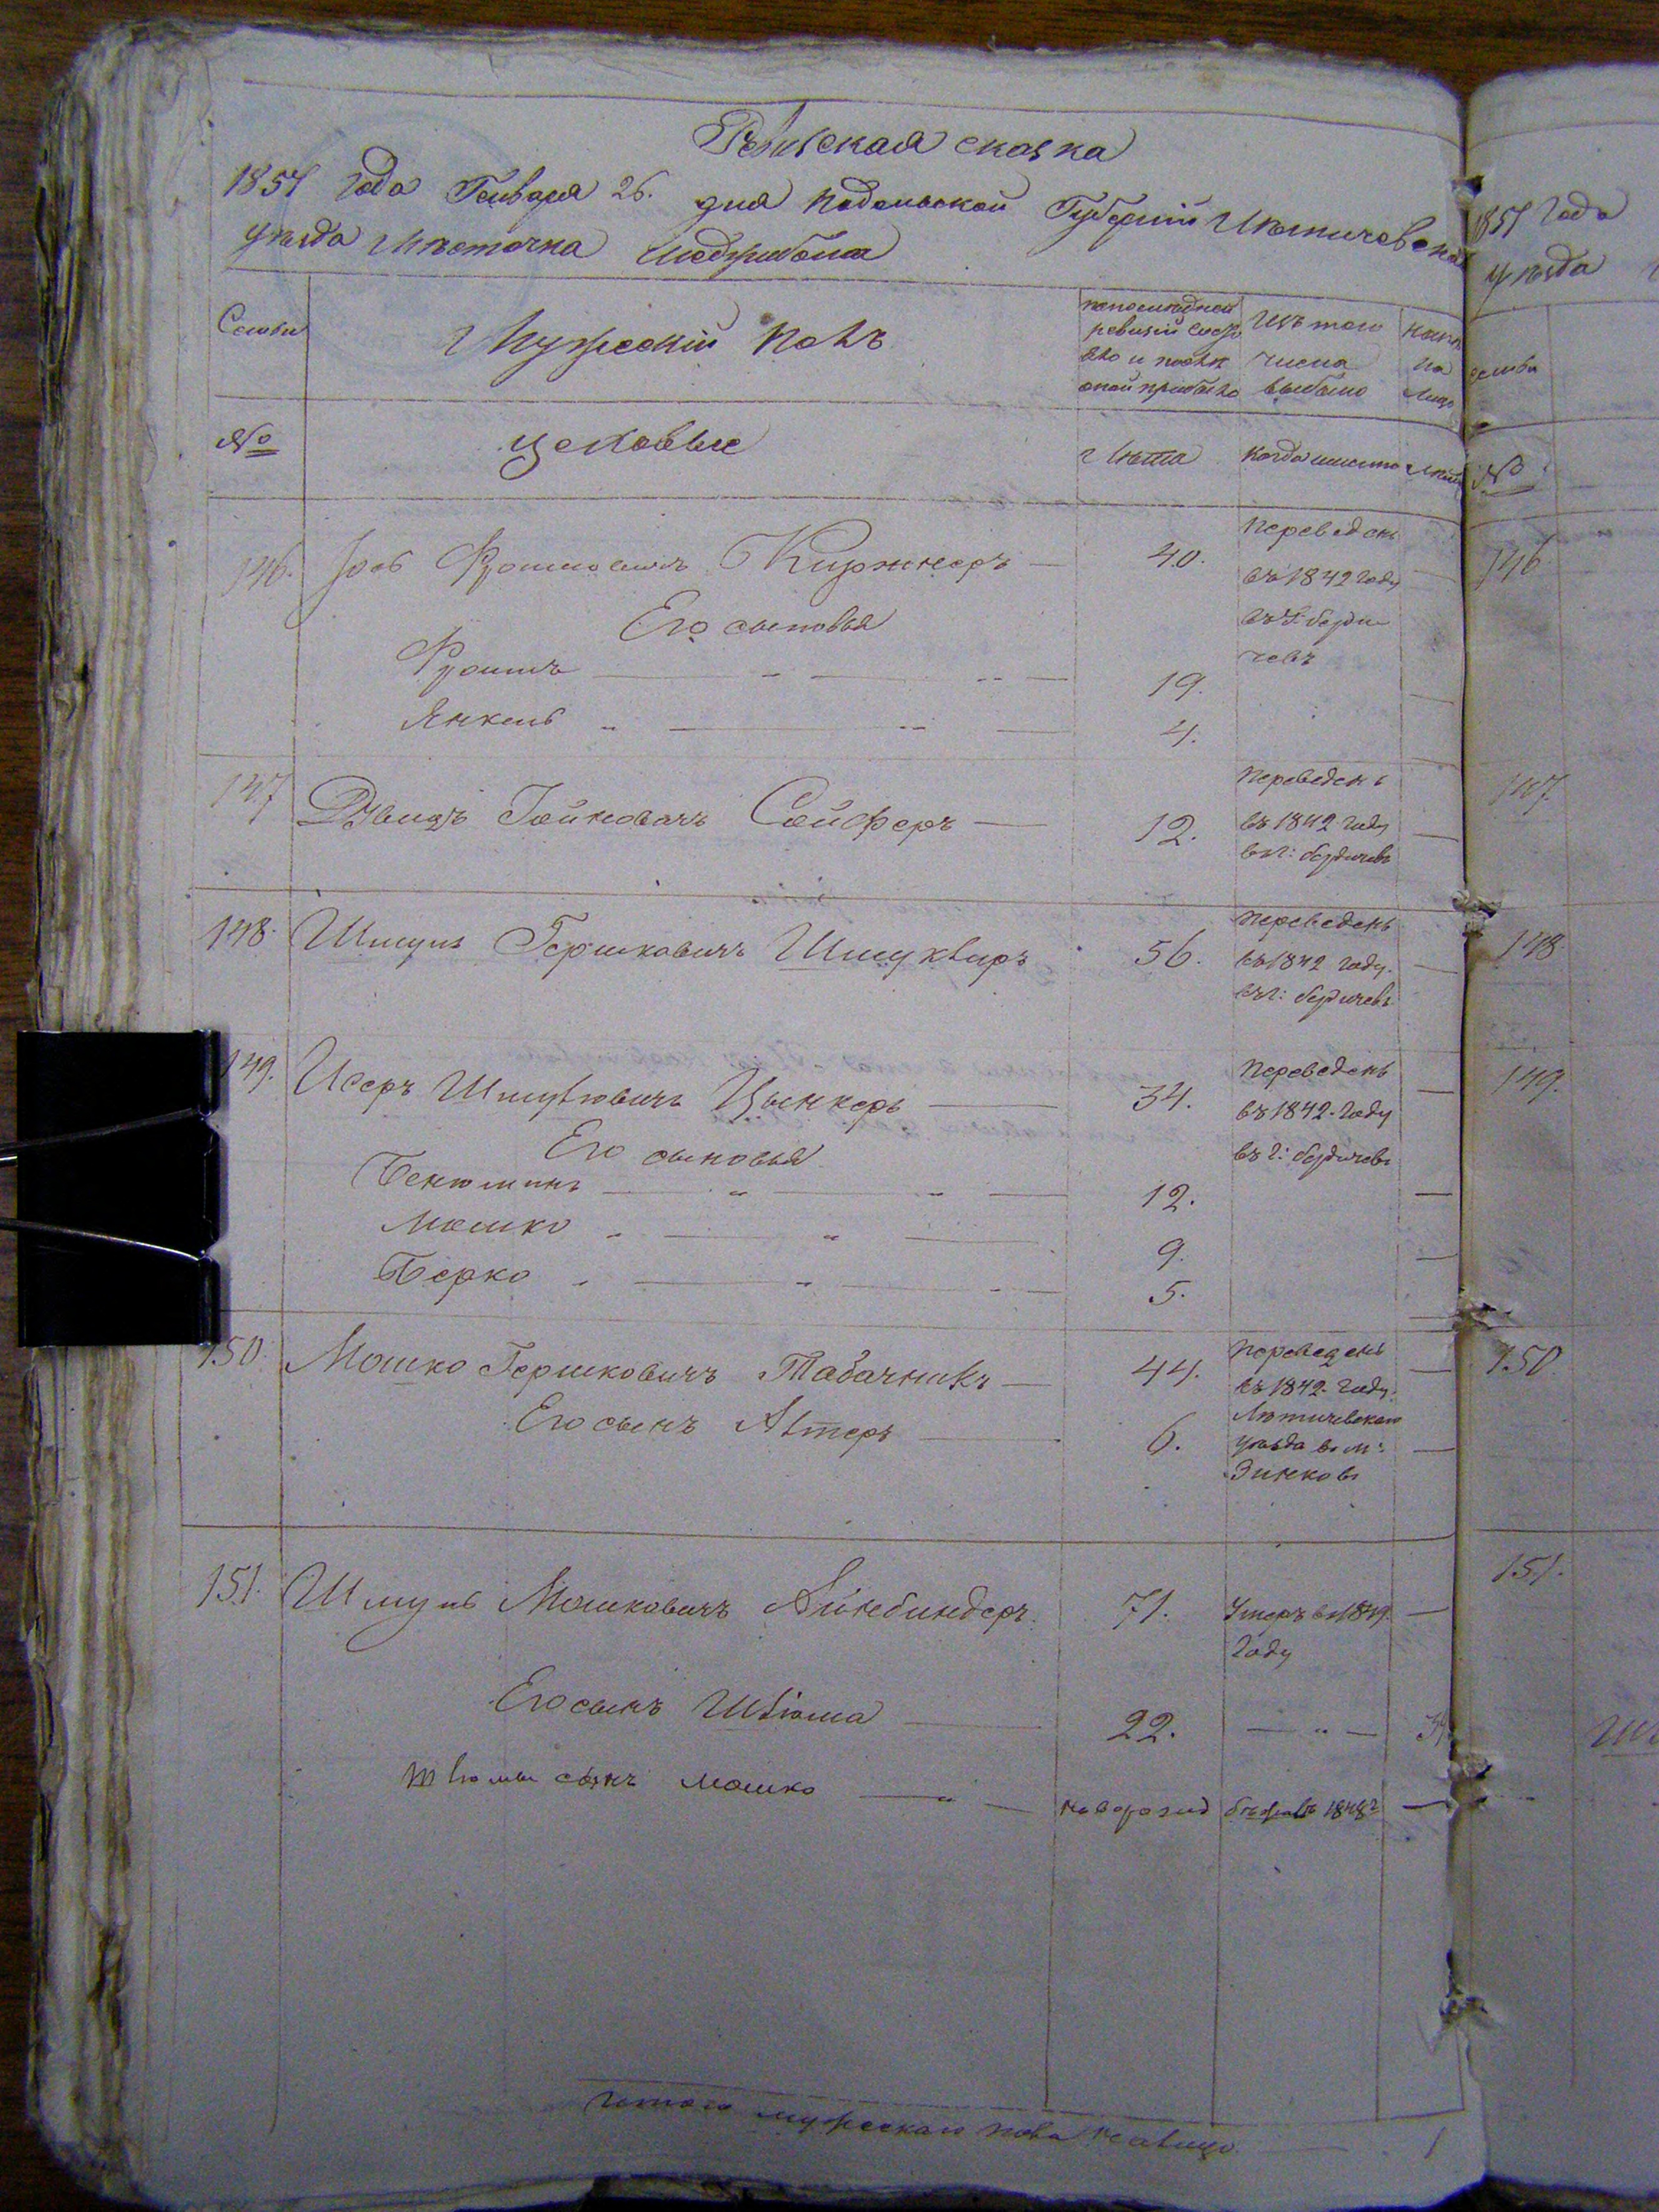 Ревизская сказка
1851 года Генваря 26. дня Подольской Губернии Летичевска
уезда Местечка Меджибожа
Семьи
Мужеский полъ
по последней ревизии состояло и после оной прибыло
Изъ того числа выбыло
Ныне на лицо
№
цеховые
Лета
когда именно
Лета
146.
Іосъ Фроимовичъ Киржнеръ
40.
Переведенъ въ 1842 году въ г. Бердичевъ
Его сыновья
Фроимъ
19.
Янкель
4.
147
Давидъ Гойновичъ Сойферъ
12.
Переведенъ въ 1842 году въ г: Бердичевъ
148.
Шмуль Гершковичъ Шмуклиръ
56.
Переведенъ въ 1842 году въ г: Бердичевъ
149.
Исеръ Шмулювичъ Цынкеръ
34.
Переведенъ въ 1842 году въ г: Бердичевъ
Его сыновья
Бенюминъ
12.
Мошко
9.
Берко
5.
150.
Мошко Гершковичъ Табачникъ
44.
Переведенъ въ 1842 году Летичевскаго уезда въ м: Зинковъ
Его сынъ Алтеръ
6.
151.
Шмуль Мошковичъ Айнбиндеръ
71.
Умеръ въ 1849 году
Его сынъ Шлюма
22.
Шлюмы сынъ Мошко
новорожд
бежалъ 1848 г
итого мужескаго пола на лицо
1
1851 года
уезда
семьи
№
146
147
148
149.
150
151.